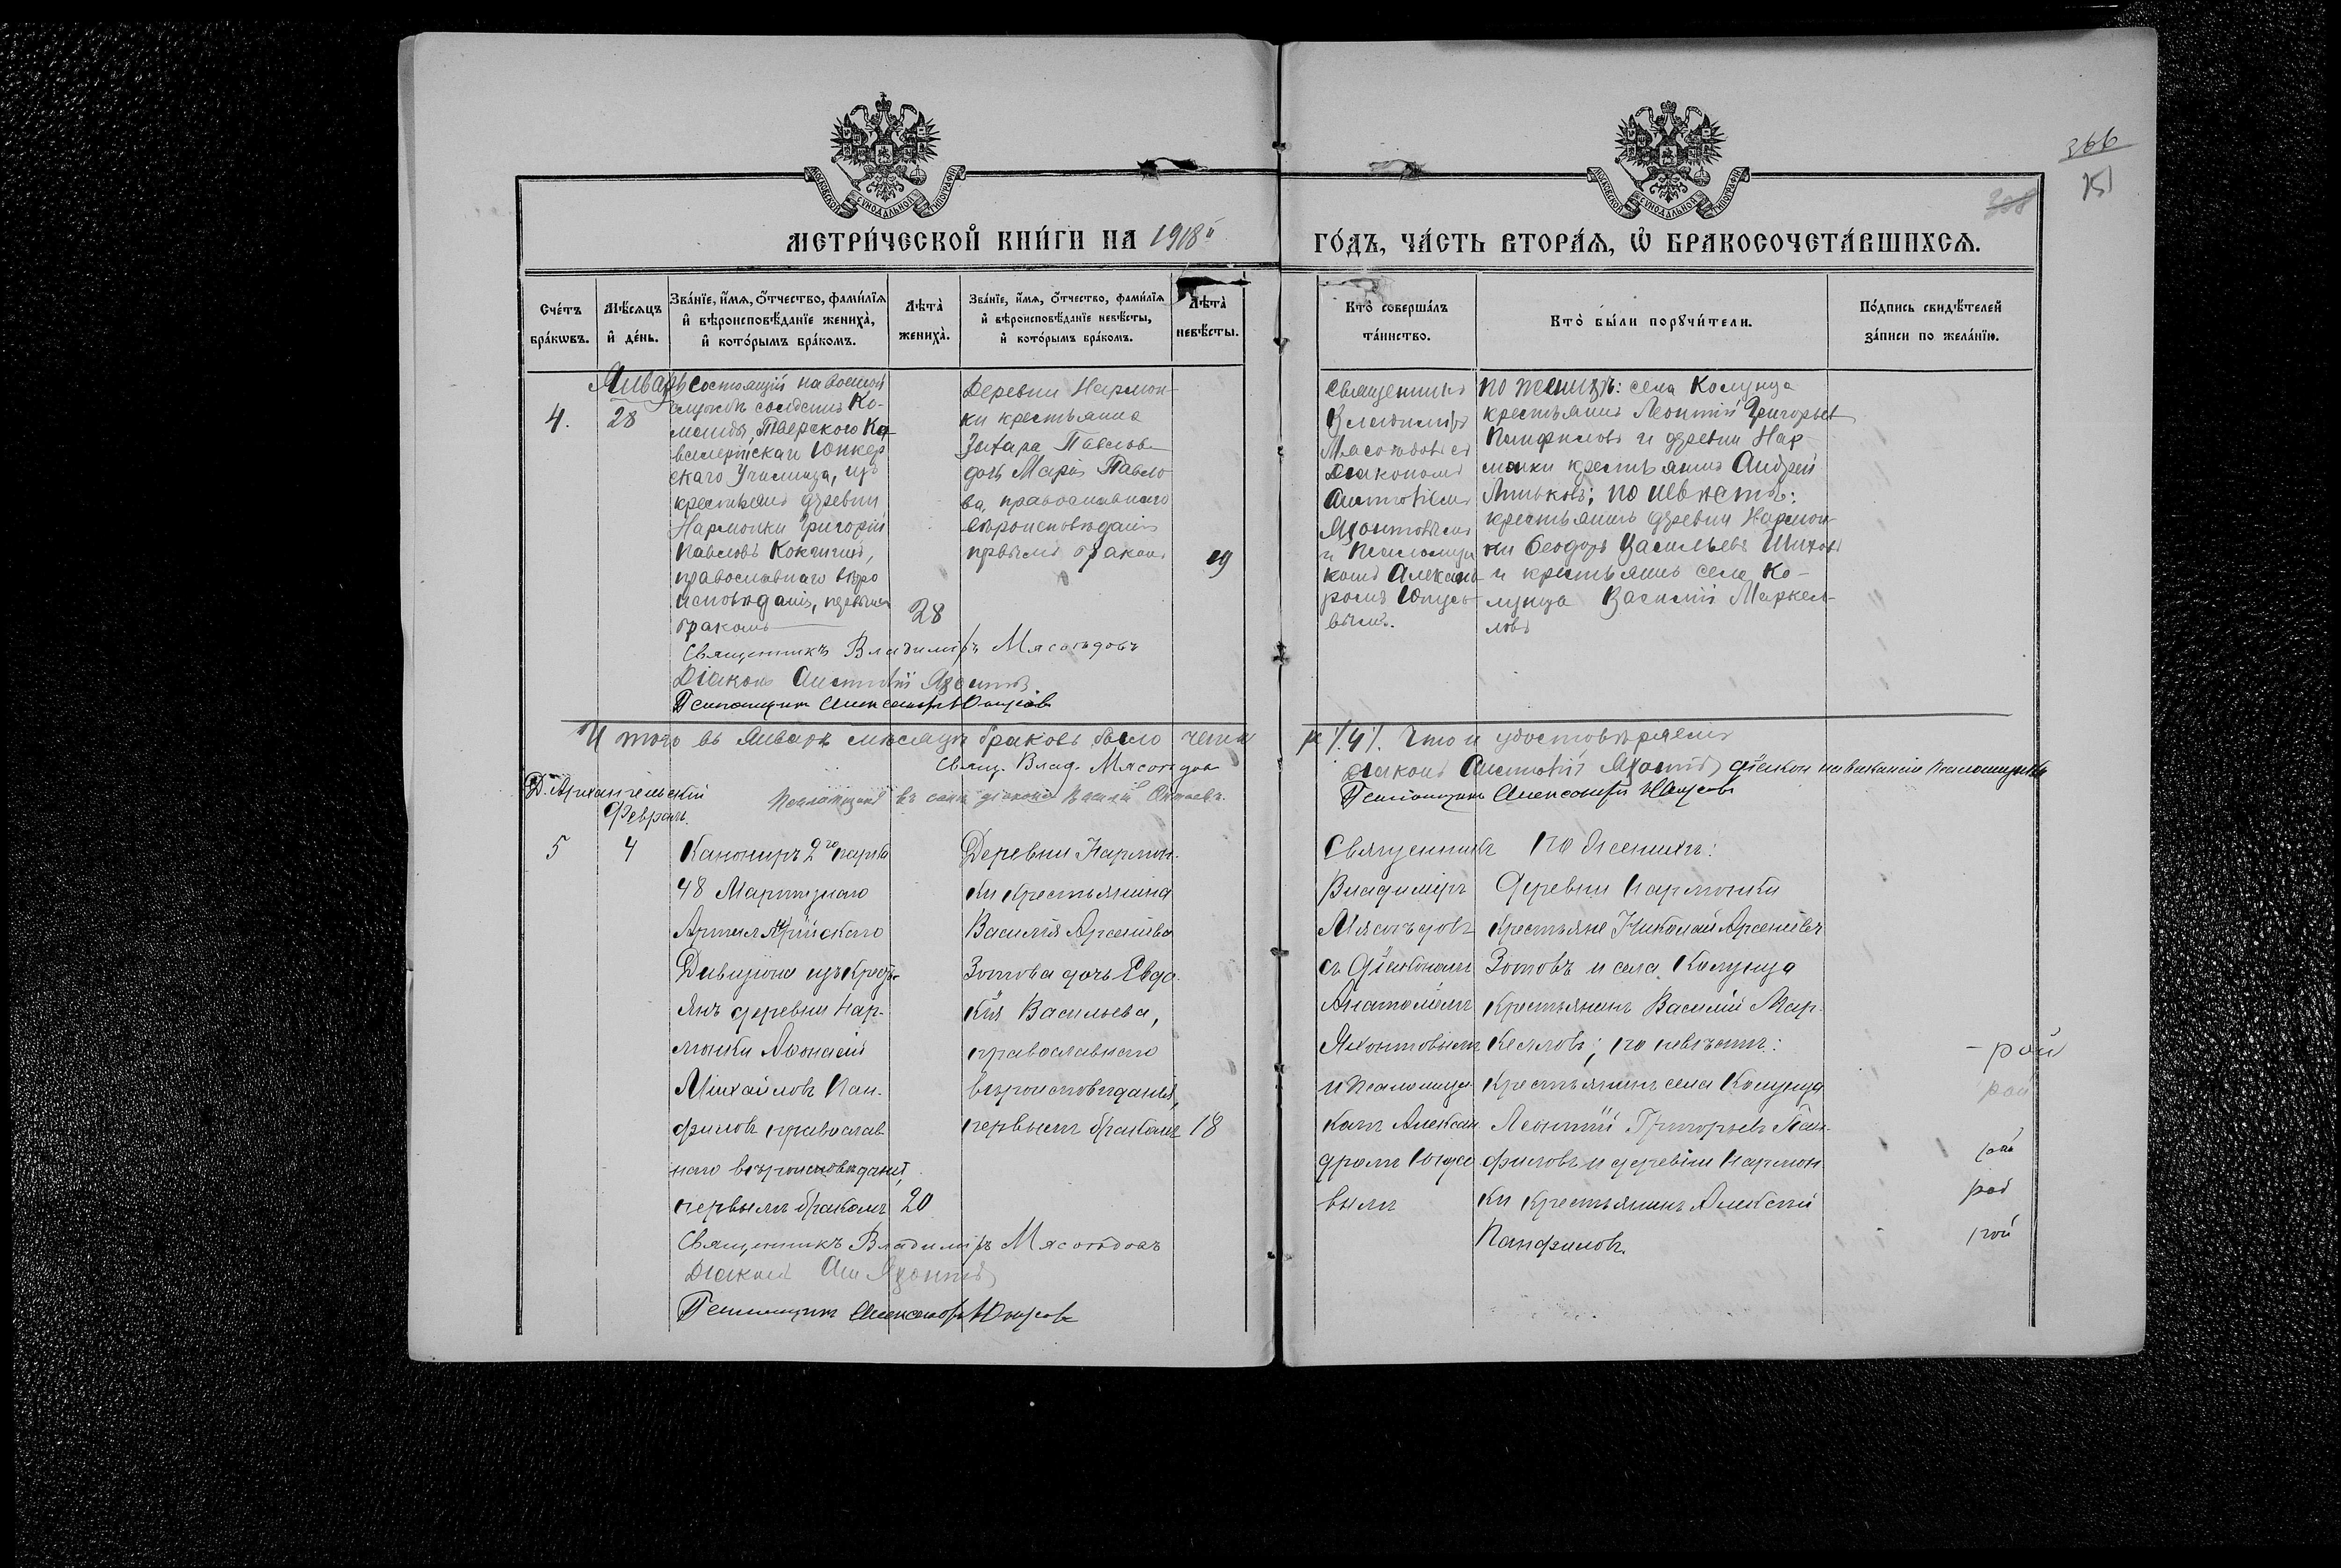 366
151
308
МЕТРИ́ЧЕСКОЙ КНИ́ГИ НА 1918 й
ГО́ДЪ, ЧА́СТЬ ВТОРА́Ѧ, Ѡ҆ БРАКОСОЧЕТА́ВШИХСѦ.
Сче́тъ бра́кѡвъ.
Мѣ́сѧцъ и҆ де́нь.
Зва́нїе, и҆́мѧ, ѻ҆́тчество, фами́лїѧ
и҆ вѣроисповѣ́данїе жениха̀,
и҆ кото́рымъ бра́комъ.
Лѣта̀ жениха̀.
Зва́нїе, и҆́мѧ, ѻ҆́тчество, фами́лїѧ
и҆ вѣроисповѣ́данїе невѣ́сты,
и҆ кото́рымъ бра́комъ.
Лѣта̀ невѣ́сты.
Кто̀ соверша́лъ та́инство.
Кто̀ бы́ли порꙋчи́тели.
По́дпись свидѣ́телей
за́писи по жела́нїю.
Январь
4.
28
Состоящій на военной
службѣ солдатъ Ко-
манды, Тверского Ка-
валерійскаго Юнкер
скаго Училища, изъ
крестьянъ деревни
Нармонки Григорій
Павловъ Кокчинъ,
православнаго вѣро
исповѣданія, первымъ
бракомъ
28
Деревни Нармон-
ки крестьянина
Павлова
дочь Марія Павло
ва, православнаго
вѣроисповѣданія
первымъ бракомъ
19
Священникъ
Владиміръ
Мясоѣдовъ съ
Діакономъ
Анатоліемъ
Яхонтовымъ
и Псаломщи
комъ Алексан
дромъ Юнусо
вымъ.
по женихѣ: села Колунца
крестьянинъ Леонтій Григорьевъ
Панфиловъ и деревни Нар-
монки крестьянинъ Андрей
по невѣстѣ:
крестьянинъ деревни Нармон-
ки Ѳеодоръ Васильевъ
и крестьянинъ села Ко-
лунца Василій Маркел-
ловъ
Священникъ Владиміръ Мясоѣдовъ
Діаконъ Анатолій Яхонтовъ.
Псаломщикъ Александръ Юнусовъ
Итого въ Январѣ мѣсяцѣ браковъ было четы
ре /4/. Что и удостовѣряемъ
Свящ. Влад. Мясоѣдовъ
Діаконъ Анатолій Яхонтовъ діаконъ на вакансіи псаломщика
Д. Архангельскій
Псаломщикъ въ санѣ діакона Василій
Псаломщикъ Александръ Юнусовъ
Февраль.
5
4
Канониръ 2го парка
48 Мартирнаго
Артиллерійскаго
Дивизіона изъ Кресть-
янъ деревни Нар-
монки Аѳонасій
Михайловъ Пан-
филовъ православ
наго вѣроисповѣданія,
первымъ бракомъ
20
Деревни Нармон-
ки крестьянина
Василія Арсеніева
Зотова дочь Евдо-
кія Васильева,
православнаго
вѣроисповѣданія,
первымъ бракомъ
18
Священникъ
Владиміръ
Мясоѣдовъ
съ Діакономъ
Анатоліемъ
Яхонтовымъ
и Псаломщи
комъ Алексан
дромъ Юнусо
вымъ
по женихѣ:
деревни Нармонки
крестьяне Николай Арсеніевъ
Зотовъ и села Колунца
Крестьянинъ Василій Мар-
келловъ; по невѣстѣ:
Крестьянинъ села Колунца
Леонтій Григорьевъ Пан-
филовъ и деревни Нармон
ки крестьянинъ Алексѣй
Панфиловъ.
Священникъ Владиміръ Мясоѣдовъ
Діаконъ Ан Яхонтовъ
Псаломщикъ Александръ Юнусовъ